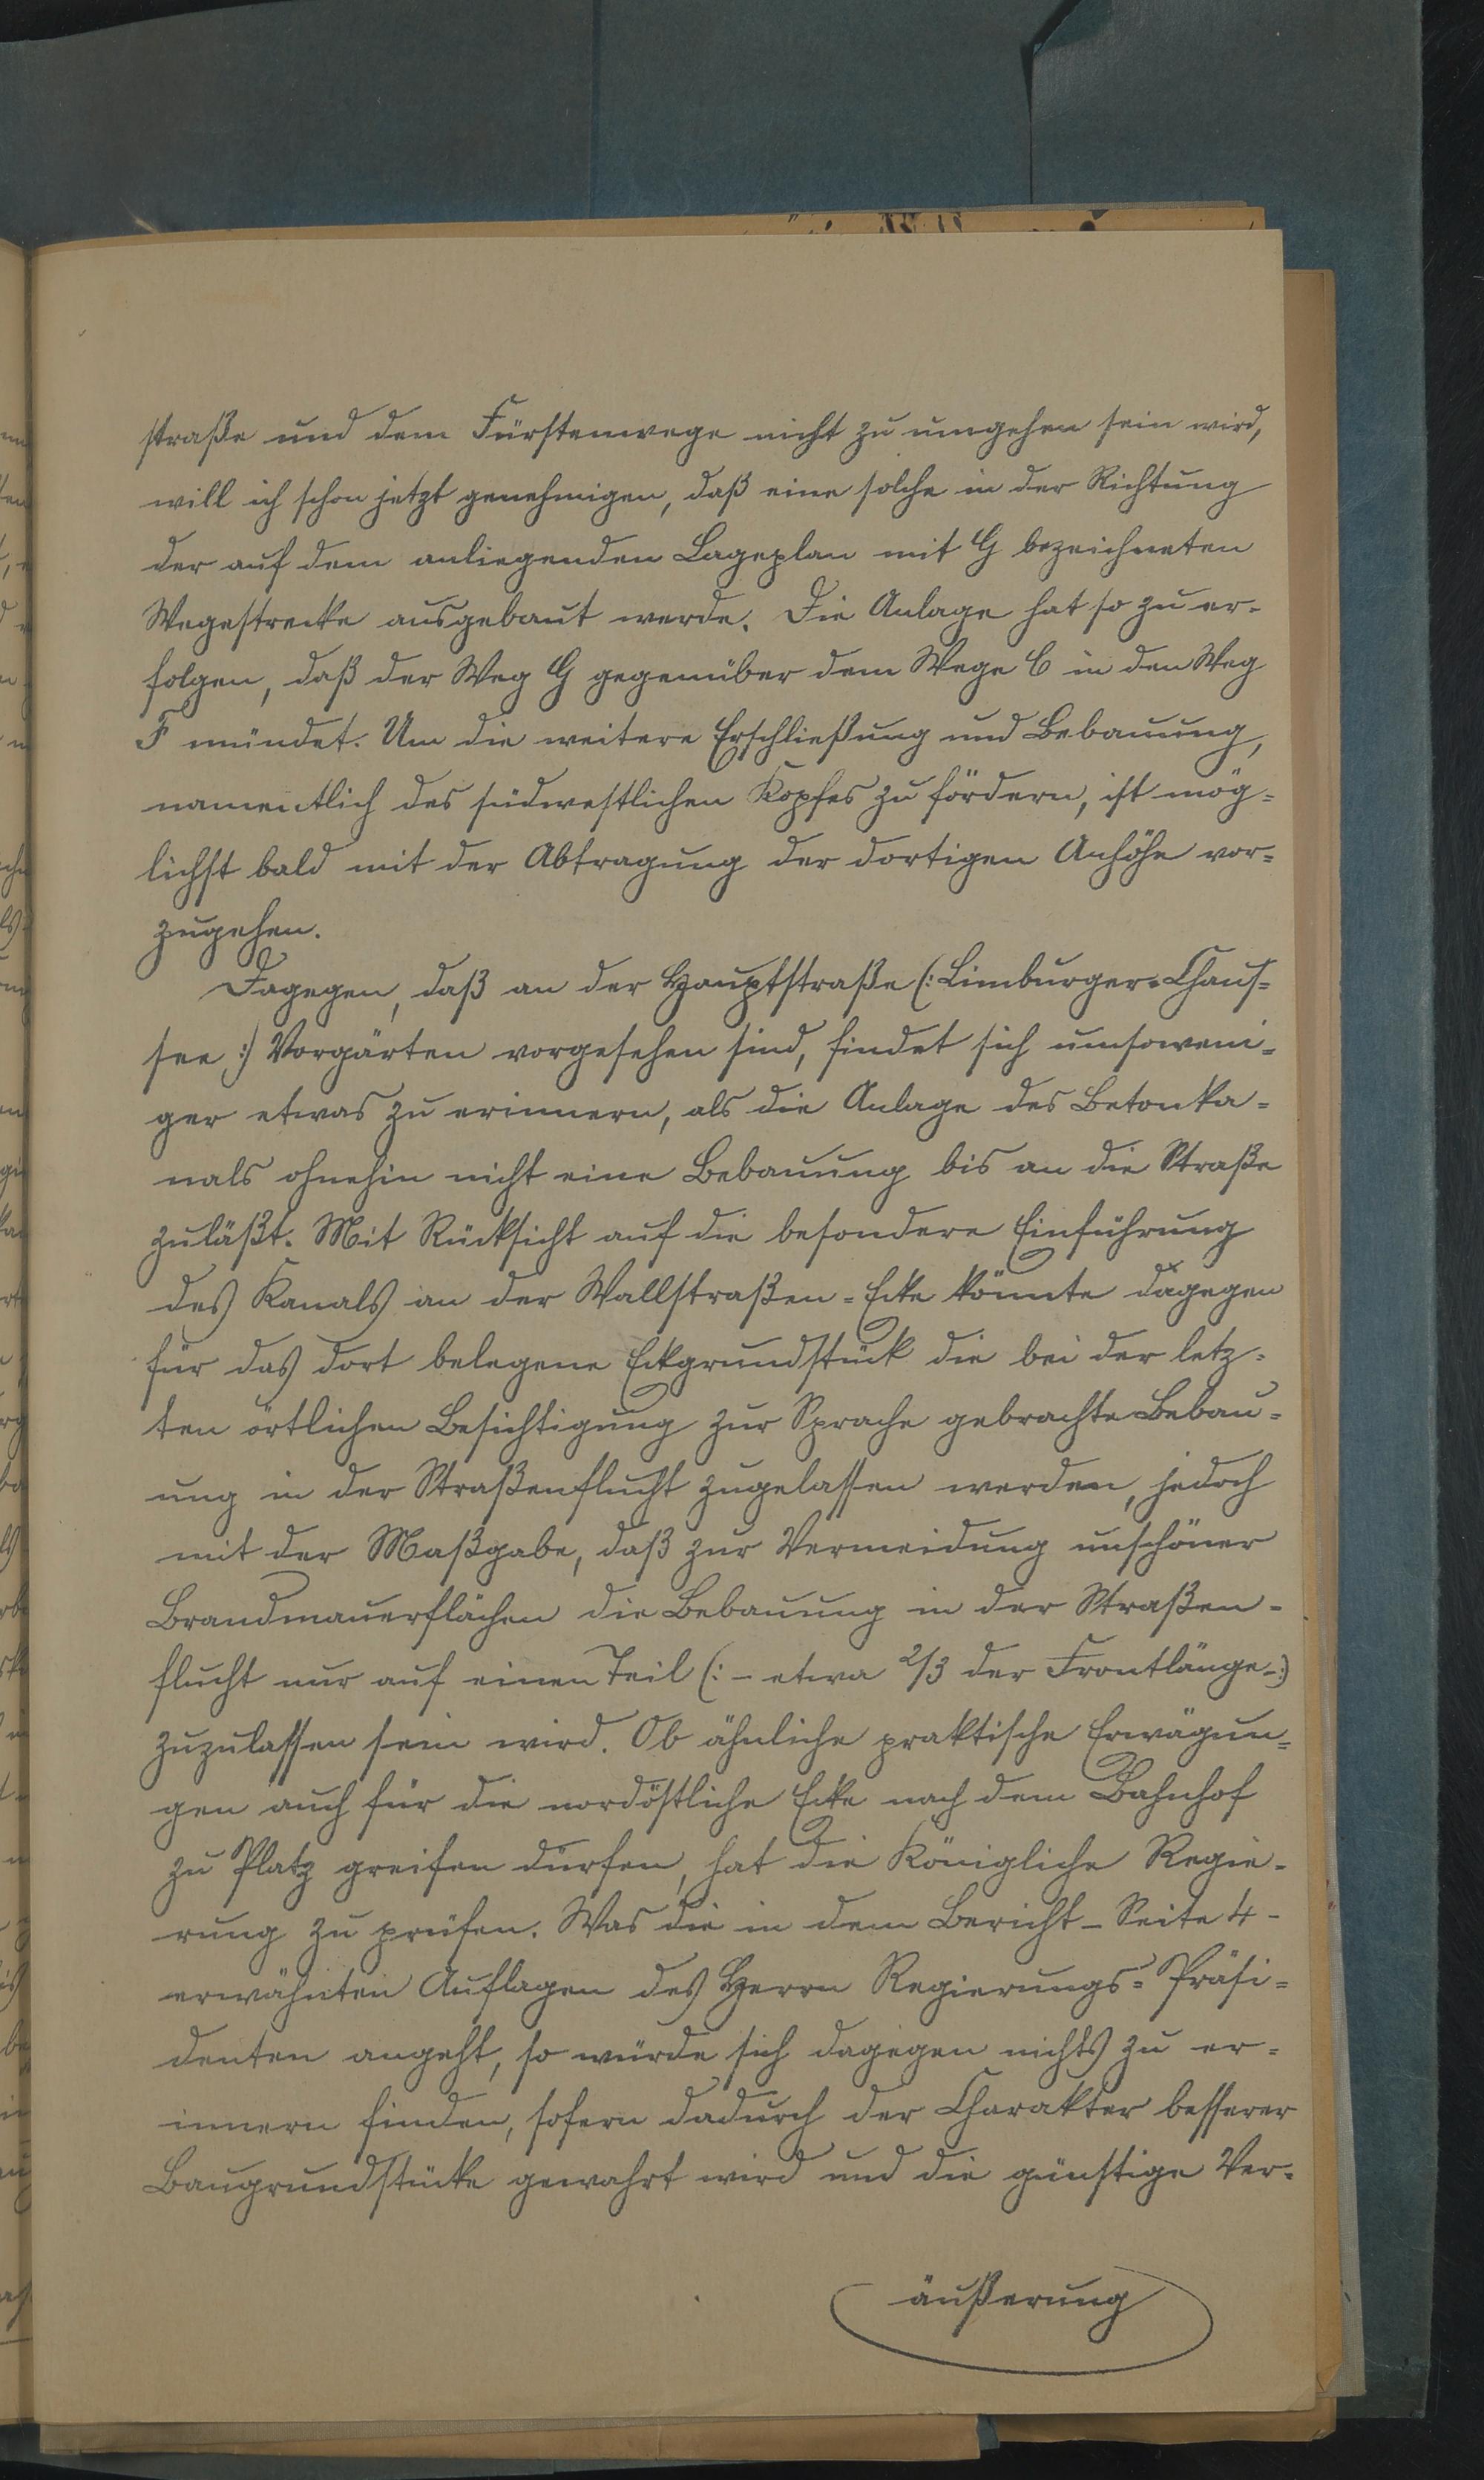 straße und dem Fürstenwege nicht zu umgehen sein wird,
will ich schon jetzt genehmigen, daß eine solche in der Richtung
der auf dem anliegenden Lageplan mit G bezeichneten
Wegestrecke ausgebaut werde. Die Anlage hat so zu er-
folgen, daß der Weg G gegenüber dem Wege C in den Weg
F mündet. Um die weitere Erschließung und Bebauung,
namentlich des südwestlichen Kopfes zu fördern, ist mög-
lichst bald mit der Abtragung der dortigen Anhöhe vor-
zugehen.
Dagegen, daß an der Hauptstraße (: Limburger-Chaus-
see :) Vorgärten vorgesehen sind, findet sich umsoweni-
ger etwas zu erinnern, als die Anlage des Betonka-
nals ohnehin nicht eine Bebauung bis an die Straße
zuläßt. Mit Rücksicht auf die besondere Einführung
des Kanals an der Wallstraßen-Ecke könnte dagegen
für das dort belegene Eckgrundstück die bei der letz-
ten örtlichen Besichtigung zur Sprache gebrachte Bebau-
ung in der Straßenflucht zugelassen werden, jedoch
mit der Maßgabe, daß zur Vermeidung unschöner
Brandmauerflächen die Bebauung in der Straßen-
flucht nur auf einen Teil (: - etwa 2/3 der Frontlänge - :)
zuzulassen sein wird. Ob ähnliche praktische Erwägun-
gen auch für die nordöstliche Ecke nach dem Bahnhof
zu Platz greifen dürfen, hat die Königliche Regie-
rung zu prüfen. Was die in dem Bericht - Seite 4 -
erwähnten Auflagen des Herrn Regierungs-Präsi-
denten angeht, so würde sich dagegen nichts zu er-
innern finden, sofern dadurch der Charakter besserer
Baugrundstücke gewahrt wird und die günstige Ver-
äußerung